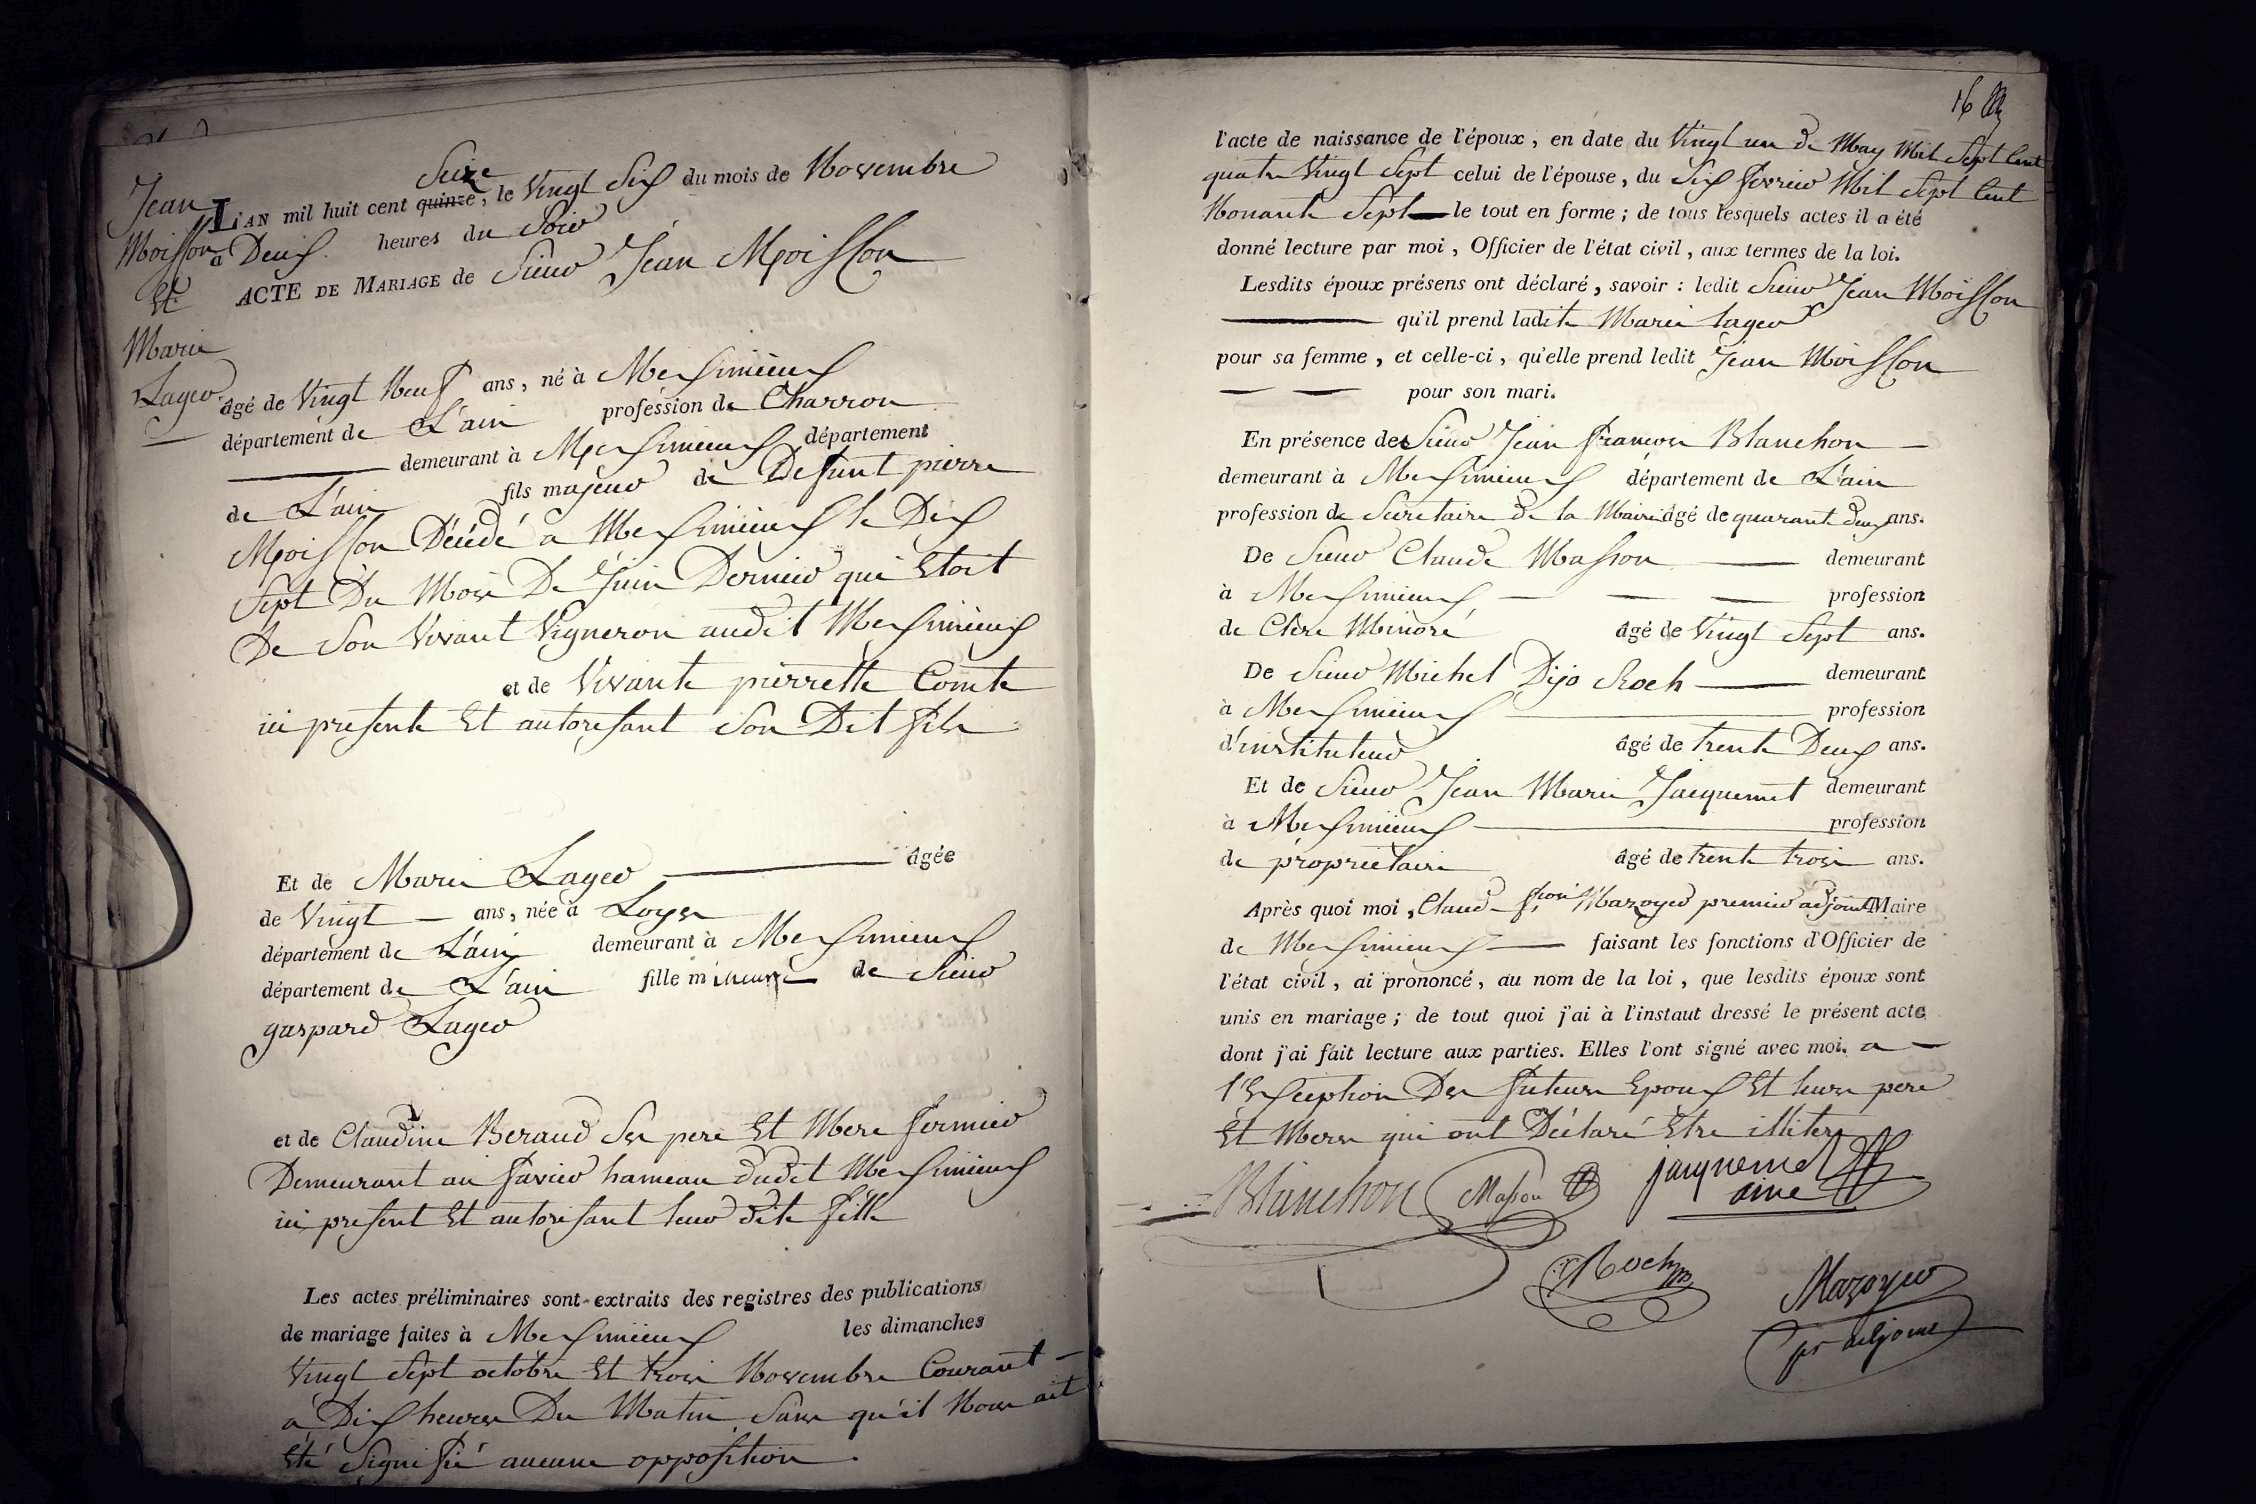 Jean
Moisson
Et
Marie
Lager
Seize
L'AN mil huit cent quinze, le Vingt Six du mois de Novembre
à Deux heures du Soir
ACTE DE MARIAGE de Sieur Jean Moisson
âgé de Vingt Neuf ans, né à Messimieux
département de L'ain profession de Charron
demeurant à Messimieux département
de L'ain fils majeur de Defunt pierre
Moisson Décédé a Messimieux le Dix
Sept Du Mois De Juin Dernier qui Etoit
De Son Vivant Vigneron audit Messimieux
et de Vivante pierrette Comte
ici presente Et autorisant Son Dit fils
Et de Marie Lager âgée
de Vingt ans, née à Loyes
département de L'ain demeurant à Messimieux
département de L'ain fille mineure de Sieur
gaspard Lager
et de Claudine Beraud Ses pere Et Mere fermier
Demeurant au favier hameau dudit Messimieux
ici present Et autorisant leur dite fille
Les actes préliminaires sont extraits des registres des publications
de mariage faites à Messimieux les dimanches
Vingt Sept octobre Et trois Novembre Courant
a Dix heures Du Matin Sans qu'il Nous ait
Eté Signifié aucune opposition.
16
l'acte de naissance de l'époux, en date du Vingt un de May Mil Sept Cent
quatre Vingt Sept celui de l'épouse, du Six fevrier Mil Sept Cent
Nonante Sept le tout en forme; de tous lesquels actes il a été
donné lecture par moi, Officier de l'état civil, aux termes de la loi.
Lesdits époux présens ont déclaré, savoir: ledit Sieur Jean Moisson
qu'il prend ladite Marie lager
pour sa femme, et celle-ci, qu'elle prend ledit Jean Moisson
pour son mari.
En présence des Sieur Jean francois Blanchon
demeurant à Messimieux département de L'ain
profession de Secretaire de la Mairie âgé de quarante deux ans.
De Sieur Claude Masson demeurant
à Messimieux profession
de Clere Minoré âgé de Vingt Sept ans.
De Sieur Michel Dijo Roch demeurant
à Messimieux profession
d'instituteur âgé de trente Deux ans.
Et de Sieur Jean Marie Jacquemet demeurant
à Messimieux profession
de proprietaire âgé de trente trois ans.
Après quoi moi, Claude fcois Mazoyer premier adjoint Maire
de Messimieux faisant les fonctions d'Officier de
l'état civil, ai prononcé, au nom de la loi, que lesdits époux sont
unis en mariage; de tout quoi j'ai à l'instaut dressé le présent acte
dont j'ai fait lecture aux parties. Elles l'ont signé avec moi. a
l'Exception Des futurs Epoux Et leurs pere
Et Meres qui ont Déclaré Etre illiteres
Blanchon Masson jacquemet
ainé
Roch
Mazoyer
pr adjoint